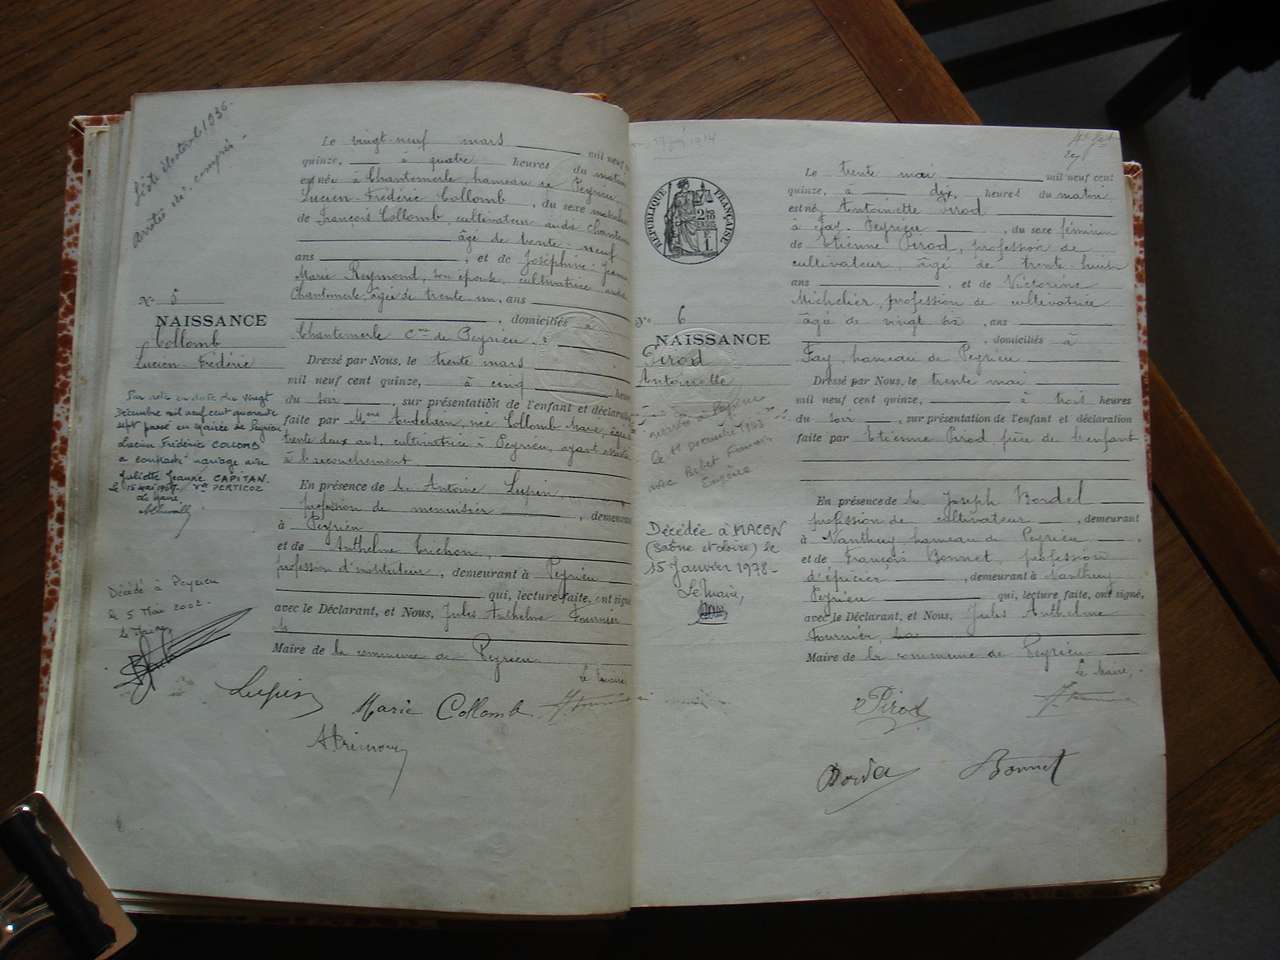 Liste électorale 1936.
N° 5
NAISSANCE
Collomb
Lucien-Frédéric
Par acte en date du vingt
Décembre mil neuf cent quarante
sept passé en mairie de Peyrieu
Lucien Frédéric COLLOMB
a contracté mariage avec
Juliette Jeanne CAPITAN.
le Maire,
Décédé à Peyrieu
le 5 Mai 2002.
le Maire,
Le vingt-neuf mars mil neuf cent
quinze, à quatre heures du matin
est né à Chantemerle, hameau de Peyrieu,
Lucien-Frédéric Collomb, du sexe masculin
de François Collomb cultivateur audit Chantemerle
âgé de trente-neuf
ans, et de Joséphine-Jeanne
Marie Reymond, son épouse, cultivatrice audit
Chantemerle, âgée de trente-un, ans
, domiciliés à
Chantemerle Cne de Peyrieu,
Dressé par Nous, le trente mars
mil neuf cent quinze, à cinq heures
du soir, sur présentation de l'enfant et déclaration
faite par Mme Audelain, née Collomb Marie, âgée
trente deux ans, cultivatrice à Peyrieu, ayant assisté
à l'accouchement
En présence de M. Antoine Lupin,
profession de menuisier, demeurant
à Peyrieu
et de Anthelme Trichon,
profession d'instituteur, demeurant à Peyrieu
qui, lecture faite, ont signé
avec le Déclarant, et Nous, Jules Anthelme Fournier
Maire de la commune de Peyrieu
le Maire,
Lupin
Marie Collomb
RÉPUBLIQUE FRANÇAISE
6
NAISSANCE
Pirod
Antoinette
Décédée à MACON
(Saône et Loire) le
15 Janvier 1978-
Le Maire,
Le trente mai mil neuf cent
quinze, à dix, heures du matin
est née Antoinette Pirod
à Fay, Peyrieu, du sexe féminin
de Etienne Pirod, profession de
cultivateur, âgé de trente-huit
ans, et de Victorine
Michelier, profession de cultivatrice
âgée de vingt six, ans
, domiciliés à
Fay, hameau de Peyrieu
Dressé par Nous, le trente mai
mil neuf cent quinze, à trois heures
du soir, sur présentation de l'enfant et déclaration
faite par Etienne Pirod père de l'enfant
En présence de M. Joseph Bordel
profession de cultivateur, demeurant
à Nanthuy, hameau de Peyrieu
et de François Bonnet, profession
d'épicier, demeurant à Nanthuy
Peyrieu qui, lecture faite, ont signé,
avec le Déclarant, et Nous, Jules Anthelme
Fournier,
Maire de la commune de Peyrieu
le Maire,
Pirod
Bonnet